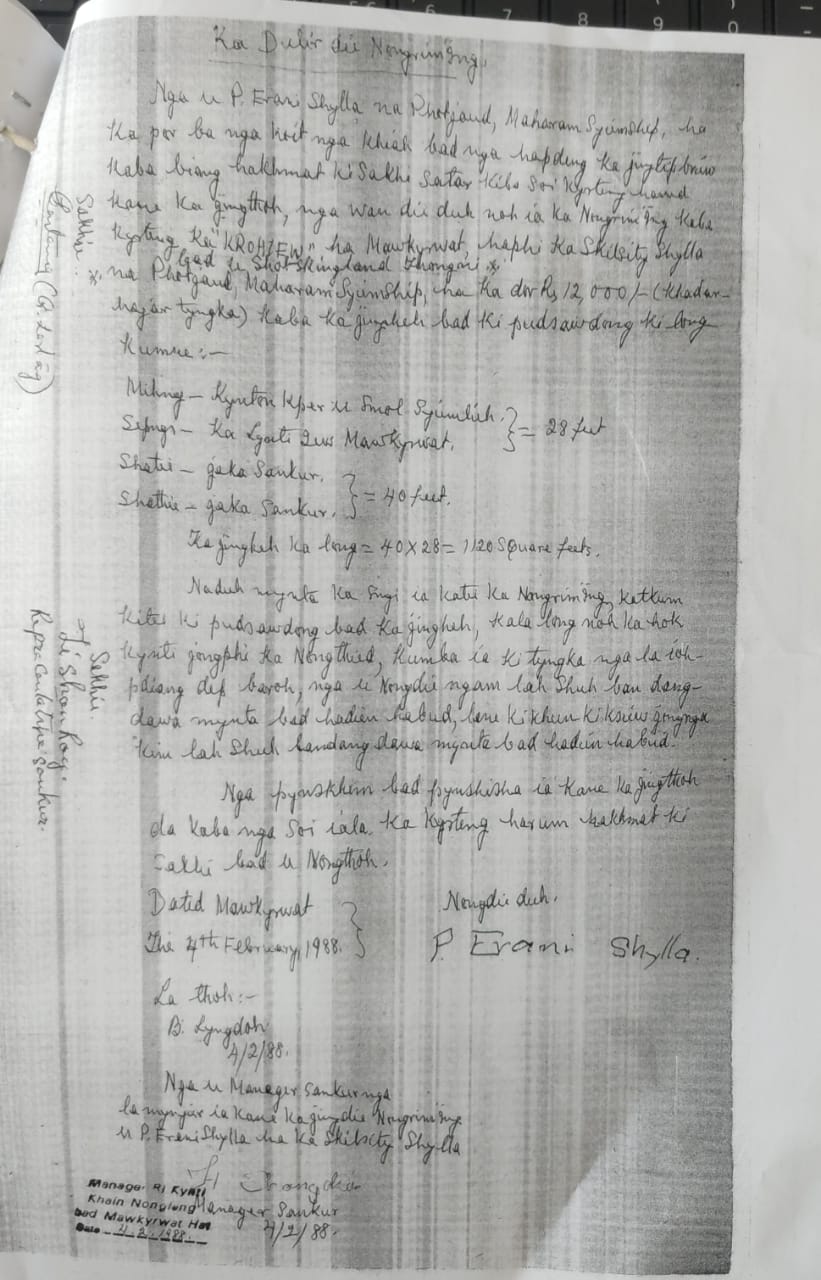 Ka Dulir die Nongrimïng.
Nga u P. Erani Shylla, na Photjaud, Maharam Syiemship, ha
ka por ba nga koit nga khiah bad nga hapdeng ka jingtip briew
kaba biang hakhmat ki Sakhi Satar kiba Soi kyrteng harud
kane ka jingthoh, nga wan die duh noh ia ka Nongrimïng kaba
kyrteng Ka "KROHTEW" ha Mawkyrwat, haphi Ka Skilsity Shylla
bad u Shotskingland Thongni *
* na Photjaud, Maharam Syiemship, ha ka dor Rs 12,000/- (khadar-
hajar tyngka) kaba ka jingheh bad ki pudsawdong ki long
kumne:-
Mihngi - Kynton kper u Smol Syiemlieh.
Sepngi - Ka Lynti Mawkyrwat.
= 28 feet
Shatei - jaka Sankur.
Shathie - jaka Sankur.
= 40 feet.
Ka jingheh ka long = 40 x 28 = 1120 Square feets.
Naduh mynta ka sngi ia katei ka Nongrimïng, katkum
kitei ki pudsawdong bad ka jingheh, kala long noh ka hok
kynti jongphi ka Nongthied, kumba ia ki tyngka nga la ioh-
pdiang dep baroh, nga u Nongdie ngam lah Shuh ban dang-
dawa mynta bad hadien habud, lane ki khun ki ksiew jongnga
kim lah Shuh bandang dawa mynta bad hadien habud.
Nga pynskhem bad pynshisha ia kane ka jingthoh
da kaba nga Soi iala ka kyrteng harum hakhmat ki
Sakhi bad u Nongthoh.
Dated Mawkyrwat
The 4th February, 1988.
Nongdie duh.
P. Erani Shylla.
La thoh:-
B. Lyngdoh
4/2/88.
Nga u Manager Sankur nga
la mynjur ia kane ka jingdie Nongrimïng
u P. Erani Shylla ha Ka Skilsity Shylla
Manager Sankur
4/2/88.
Manager Ri Kynti
Khain Nonglang
bad Mawkyrwat Hat
Date 4.2.1988.
Sakhi.
Sakhi.
Sankur.